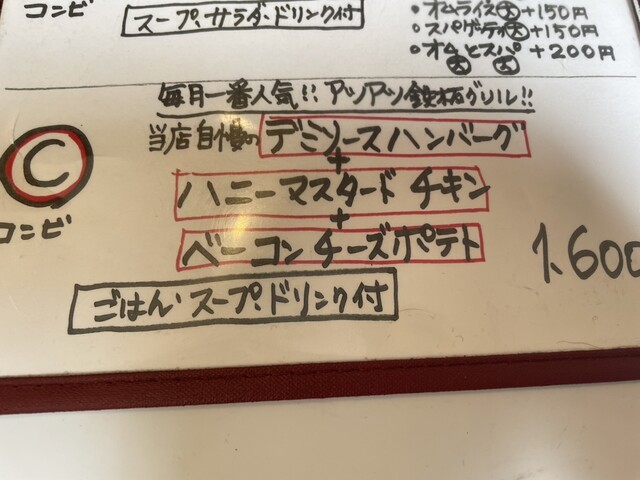 コンビ
スープ、サラダ・ドリンク付
・オムライス大+150円
・スパゲッティ大+150円
・オムとスパ+200円
大 大
毎月一番人気!! アツアツ鉄板グリル!!
当店自慢の デミソースハンバーグ
+
C
ハニーマスタード チキン
+
コンビ
ベーコンチーズポテト
1.600
ごはん・スープ・ドリンク付